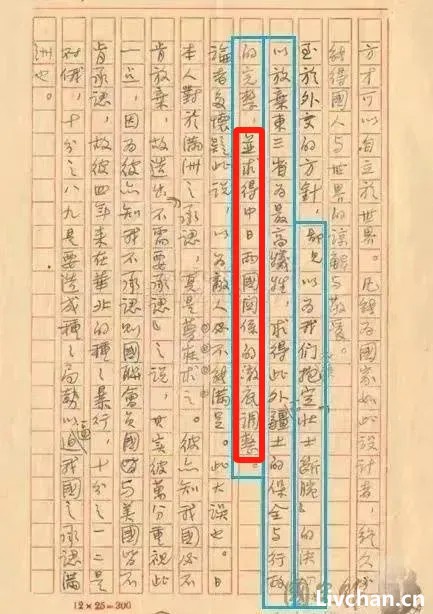 方才可以自立於世界。凡能為國家如此設計者，終久必
能得國人與世界的諒解與敬愛。
至於外交的方針，鄙見以為我們抱定壯士斷腕的決
以放棄東三省為最高犧牲，求得此外疆土的保全與行政
的完整，並求得中日兩國關係的澈底調整。
論者多懷疑此說，以為敵人必不能滿足。此大誤也。日
本人對於滿洲之承認，真是夢寐求之。彼亦知我國必不
肯放棄，故造出「不需要承認」之說，其實彼萬分重視此
一點，因為彼亦知我不承認則國聯會員國皆與美國皆不
肯承認，故彼四年來在華北的種々暴行，十分之一二是
對俄，十分之八九是要造成種々局勢以逼我國之承認滿
洲也。
12×25=300
Livchan.cn